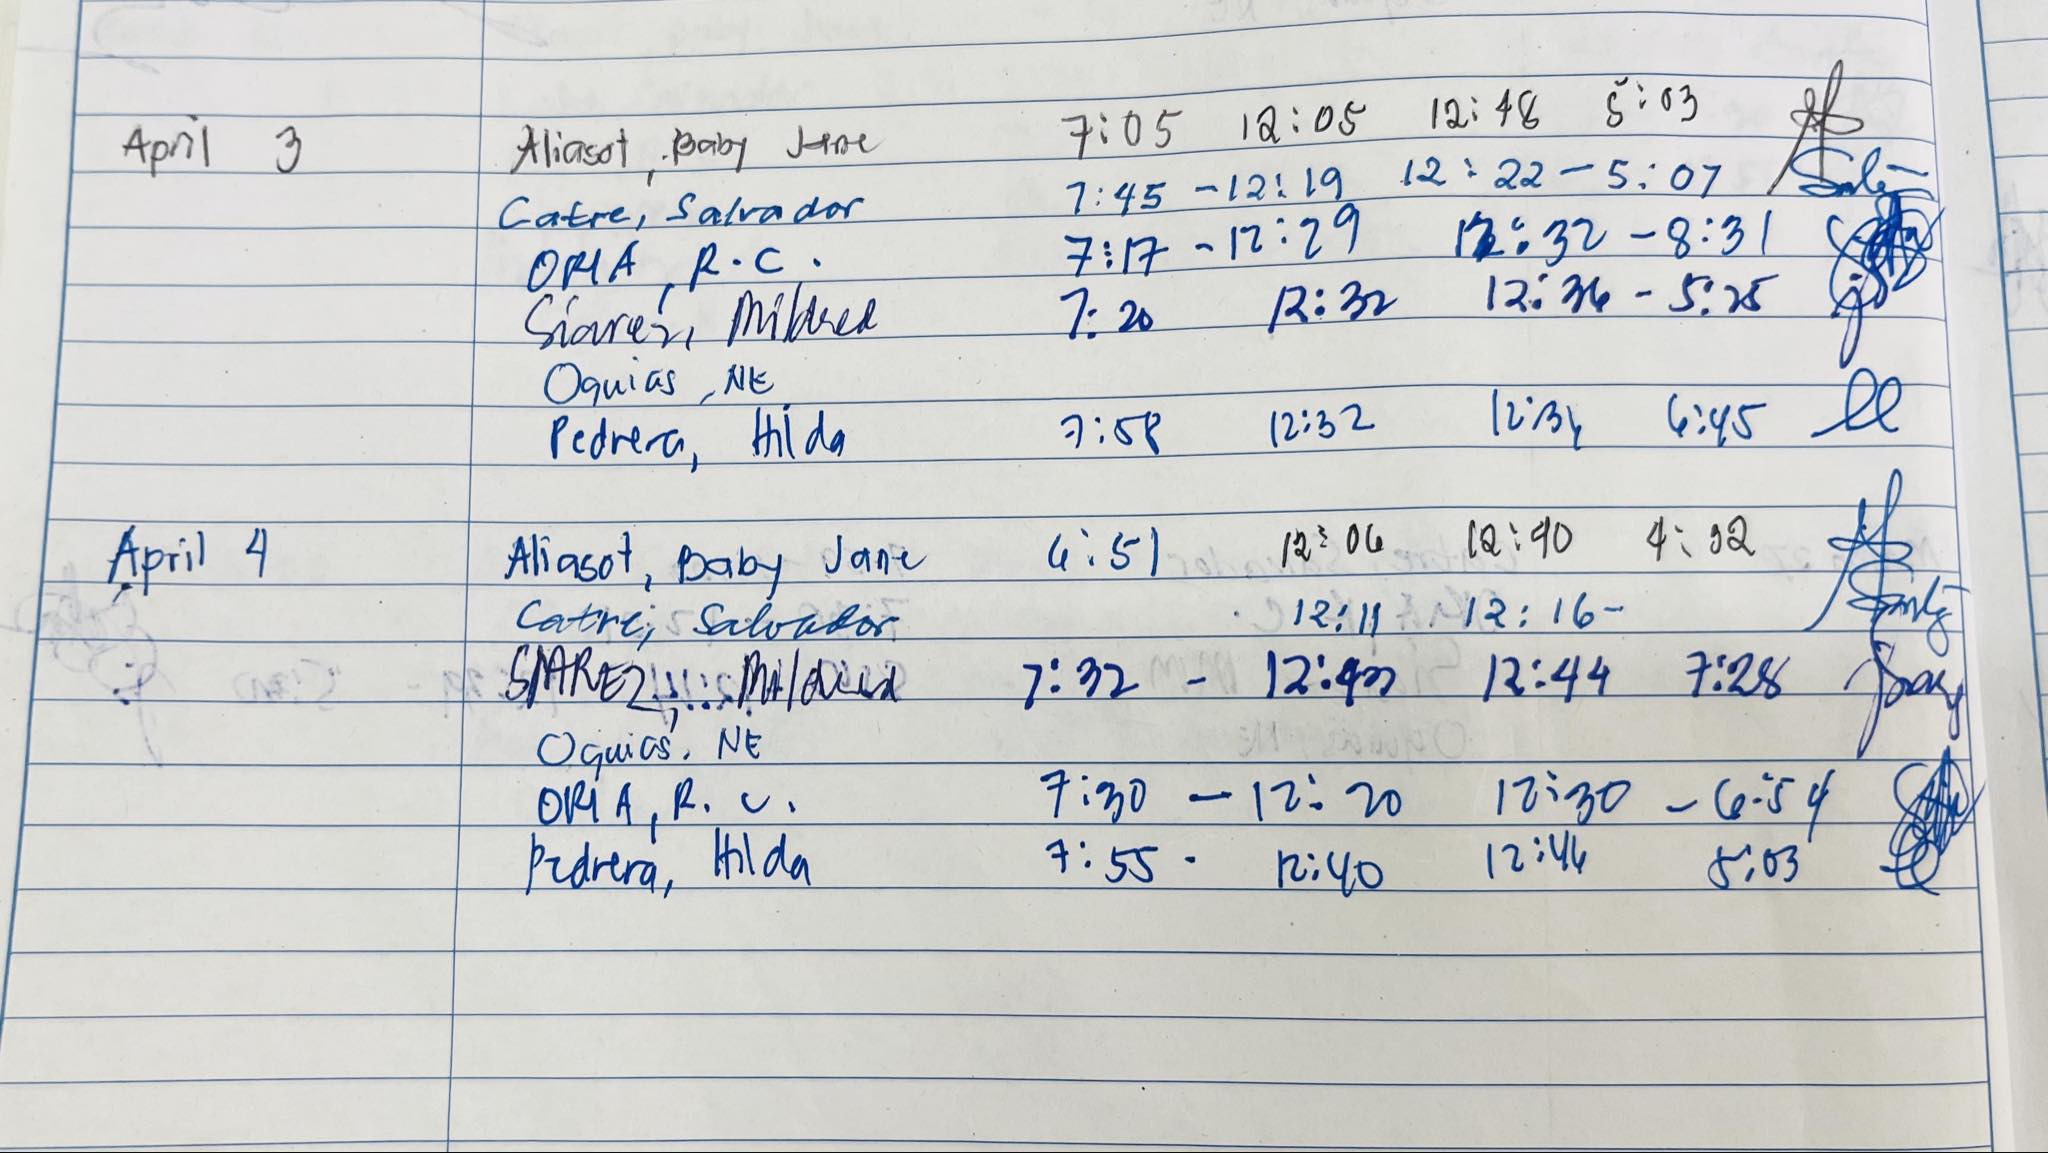 April 3 Aliasot, Baby Jane 7:05 12:05 12:48 5:03
Catre, Salvador 7:45 - 12:19 12:22 - 5:07
ORIA, R.C. 7:17 - 12:29 12:32 - 8:31
Siarez, Mildred 7:20 12:32 12:36 - 5:25
Oquias, NE
Pedrera, Hilda 7:58 12:32 12:34 6:45
April 4 Aliasot, Baby Jane 6:51 12:06 12:40 4:32
Catre, Salvador 12:11 12:16-
SIAREZ, Mildred 7:32 - 12:42 12:44 7:28
Oquias, NE
ORIA, R.C. 7:30 - 12:20 12:30 - 6:54
Pedrera, Hilda 7:55 - 12:40 12:46 5:03